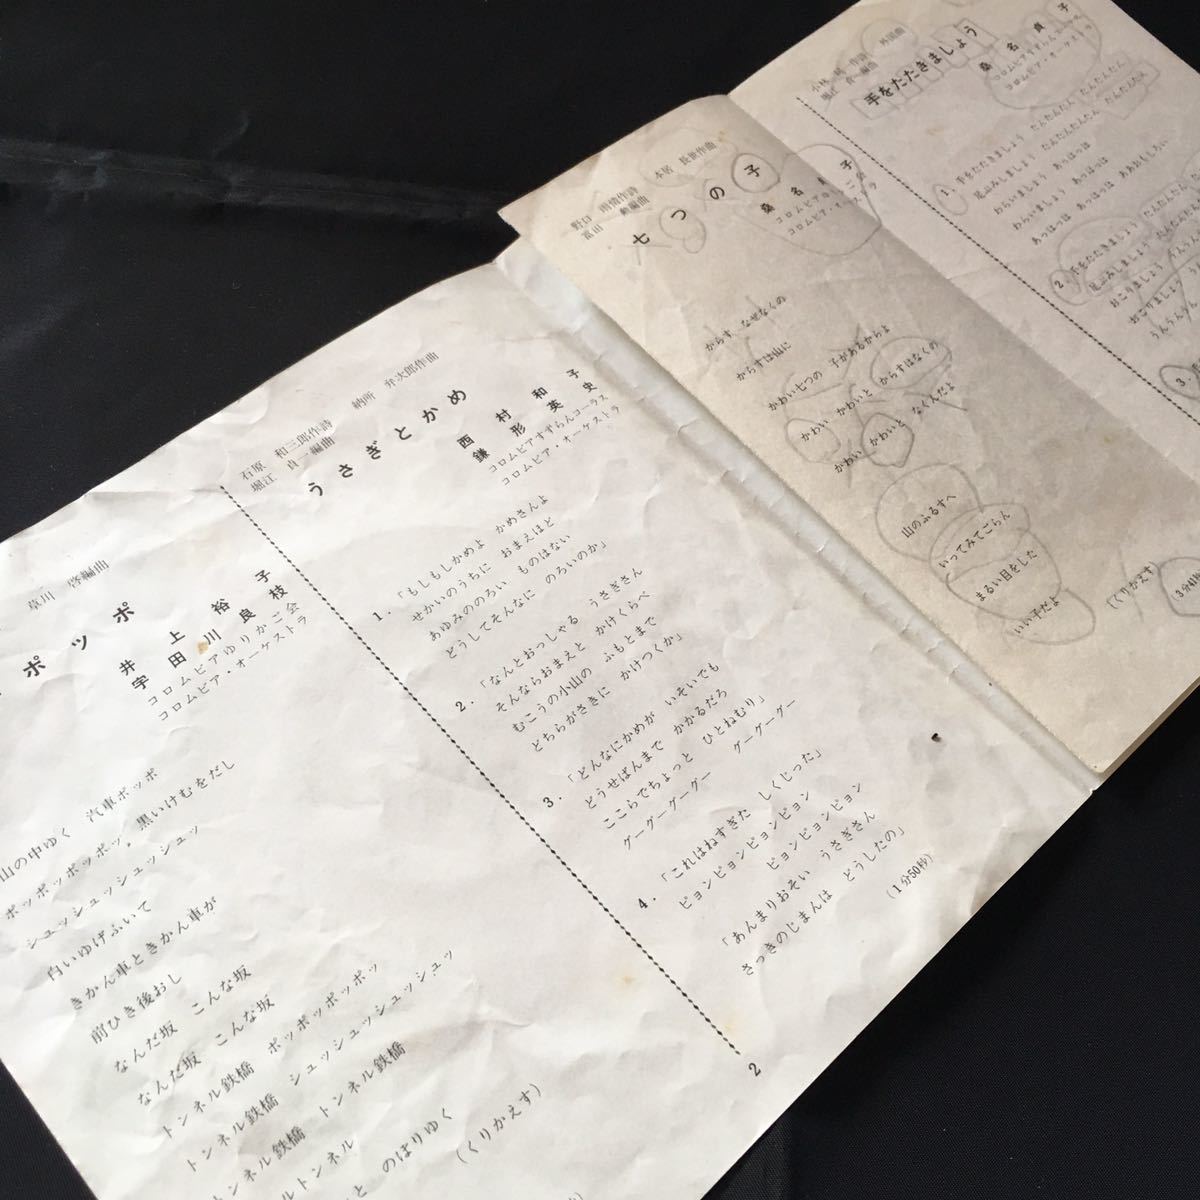 草川 啓編曲
ポッポ
井上裕子
宇田川良枝
コロムビアゆりかご会
コロムビア・オーケストラ
山の中ゆく 汽車ポッポ
ポッポッポッポッ 黒いけむをだし
シュッシュッシュッシュッ
白いゆげふいて
きかん車ときかん車が
前ひき後おし
なんだ坂 こんな坂
なんだ坂 こんな坂
トンネル鉄橋 ポッポッポッポッ
トンネル鉄橋 シュッシュッシュッシュッ
トンネル鉄橋 トンネル鉄橋
トンネルトンネル
と のぼりゆく
(くりかえす)
石原 和三郎作詩 納所 弁次郎作曲
堀江 貞一編曲
うさぎとかめ
西村和子
鎌形英史
コロムビアすずらんコーラス
コロムビア・オーケストラ
1.「もしもしかめよ かめさんよ
せかいのうちに おまえほど
あゆみののろい ものはない
どうしてそんなに のろいのか」
2.「なんとおっしゃる うさぎさん
そんならおまえと かけくらべ
むこうの小山の ふもとまで
どちらがさきに かけつくか」
3.「どんなにかめが いそいでも
どうせばんまで かかるだろ
ここらでちょっと ひとねむり」
グーグーグーグー グーグーグー
4.「これはねすぎた しくじった」
ピョンピョンピョンピョン
ピョンピョンピョン
「あんまりおそい うさぎさん
さっきのじまんは どうしたの」
(1分50秒)
2
野口 雨情作詩 本居 長世作曲
富田 勲編曲
七つの子
桑名貞子
コロムビア・オーケストラ
からす、なぜなくの
からすは山に
かわい七つの 子があるからよ
かわい かわいと からすはなくの
かわい かわいと なくんだよ
山のふるすへ
いってみてごらん
まるい目をした
いい子だよ
(くりかえす)
小林 純一作詩 外国曲
堀江 貞一編曲
手をたたきましょう
桑名貞子
コロムビア・オーケストラ
1.手をたたきましょう たんたんたん たんたんたん
足ぶみしましょう たんたんたんたん たんたんたん
わらいましょう あっはっは
わらいましょう あっはっは
あっはっは あっはっは ああおもしろい
2.手をたたきましょう たんたんたん
足ぶみしましょう たんたんたん
おこりましょう うんうんうん
おこりましょう
うんうんうん
3.